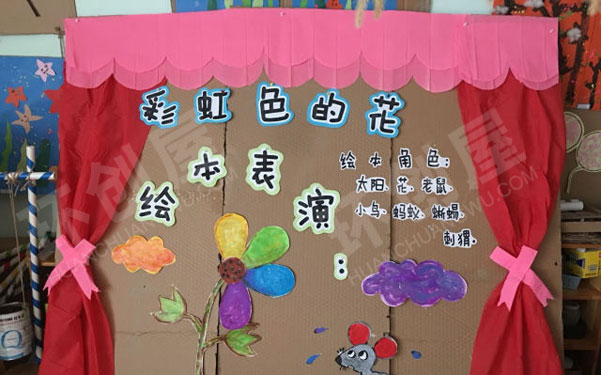 彩虹色的花
绘本表演:
绘本角色:
太阳.花.老鼠.
小鸟.蚂蚁.蜥蜴.
刺猬.
环创屋